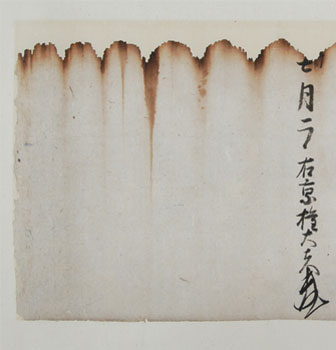 七月二日右京権大夫